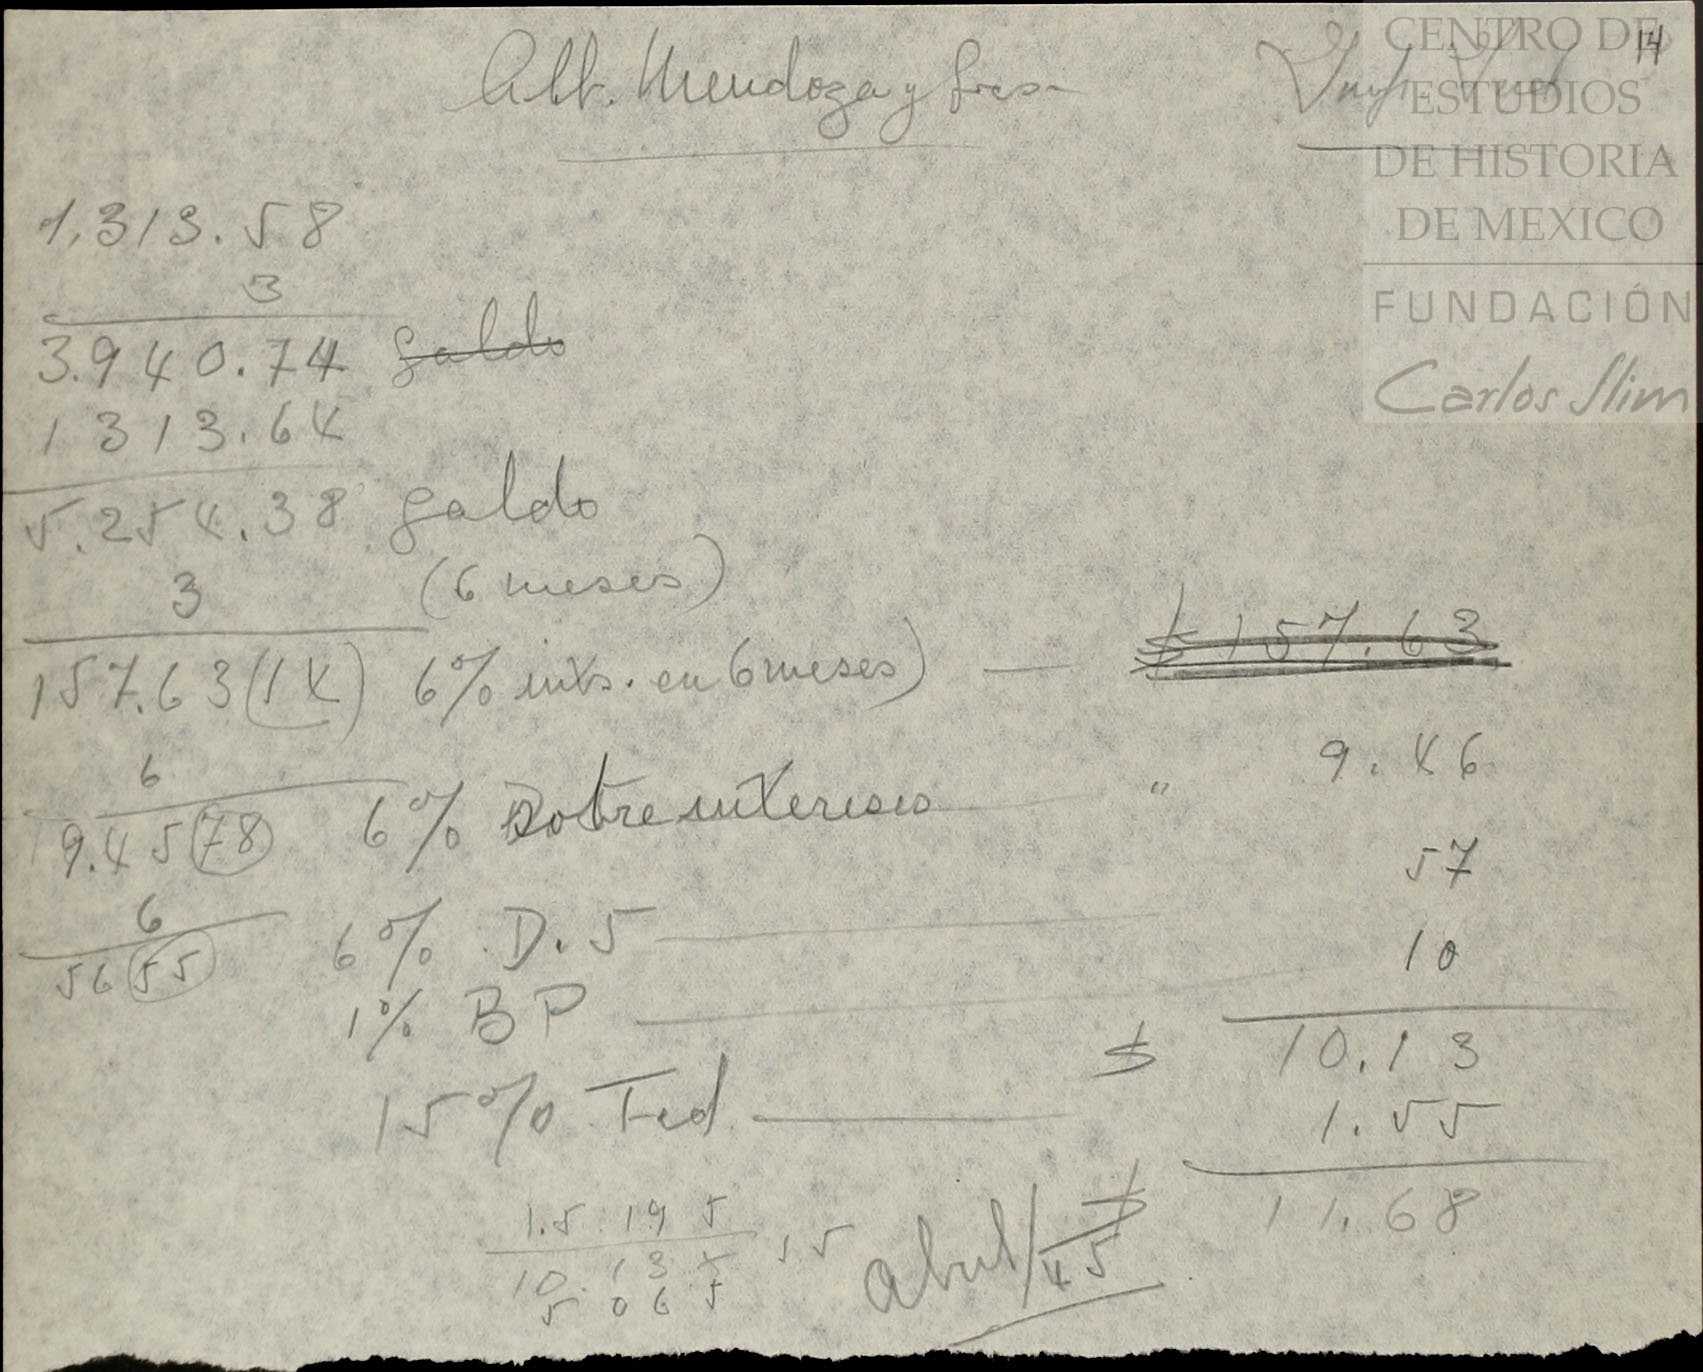 14
CENTRO DE
ESTUDIOS
DE HISTORIA
DE MEXICO
FUNDACIÓN
Carlos Slim
Alb. Mendoza y Sres.
1,313.58
3
3.940.74 saldo
1313.64
5.254.38 saldo
3 (6 meses)
157.63(14) 6% ints. en 6 meses) — $ 157.63
6
9.45 78 6% sobre intereses — " 9.46
6 57
56 55 6% D. 5 —
10
1% BP —
$ 10.13
15% Fed. — 1.55
$ 11.68
1.5 19 5
10. 1 3 x 15
5 0 6 5
abril/45